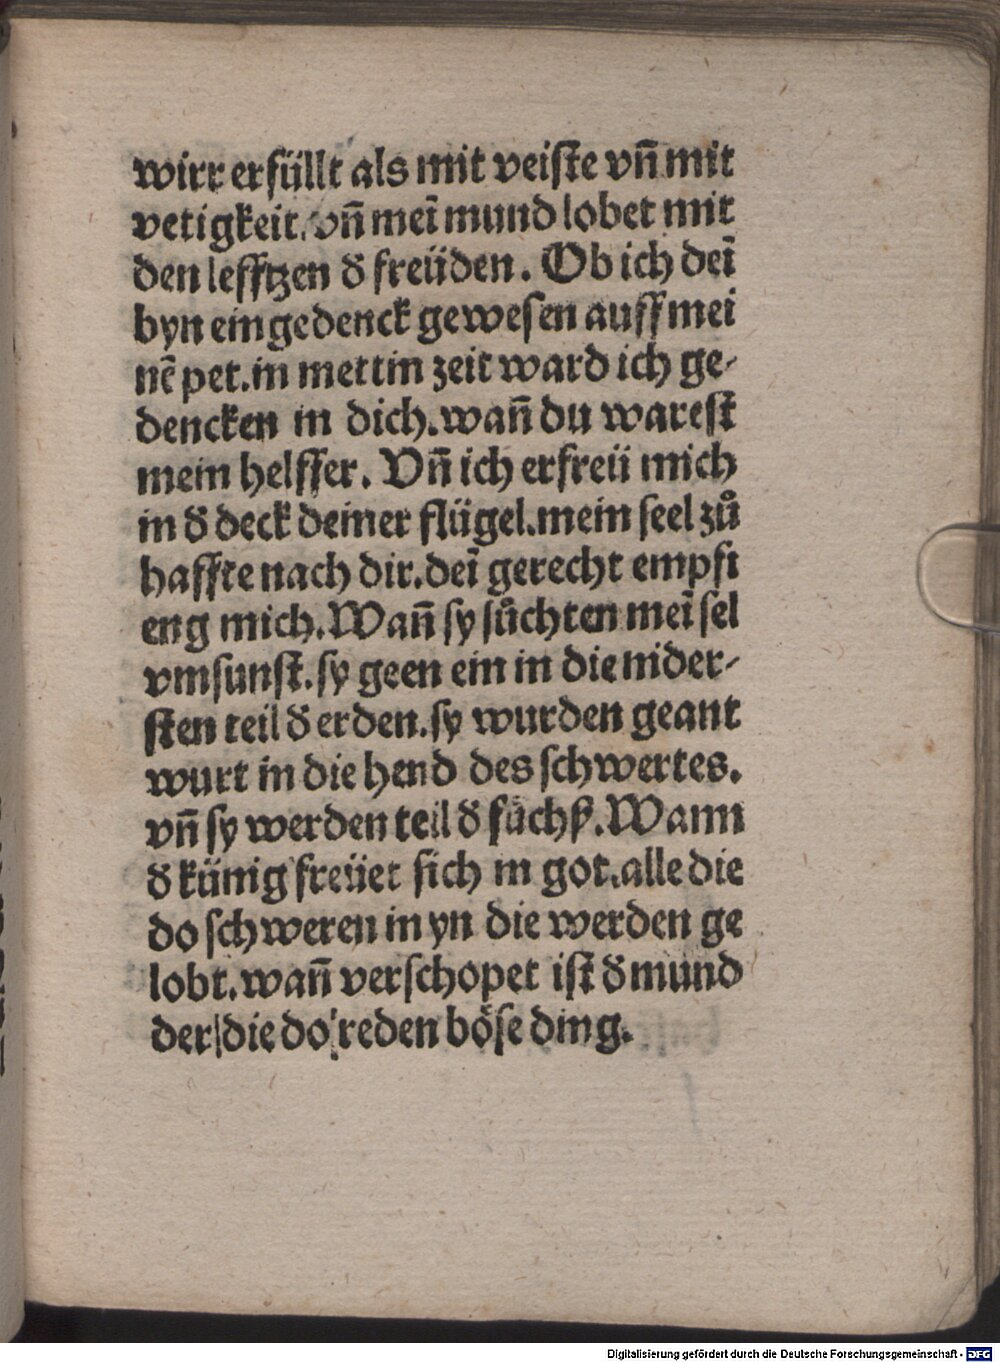 wirt erfüllt als mit veiste vn̄ mit
vetigkeit. vn̄ meī mund lobet mit
den lefftzen d̕ freüden. Ob ich deī
byn ein gedenck gewesen auff mei
nē pet. in mettin zeit ward ich ge-
dencken in dich. wan̄ du warest
mein helffer. Vn̄ ich erfreü mich
in d̕ deck deiner flügel. mein seel zuͦ
haffte nach dir. deī gerecht empfi
eng mich. Wan̄ sy suͦchten meī sel
vmsunst. sy geen ein in die nider-
sten teil d̕ erden. sy wurden geant
wurt in die hend des schwertes.
vn̄ sy werden teil d̕ füchß. Wann
d̕ künig freüet sich in got. alle die
do schweren in yn die werden ge
lobt. wan̄ verschopet ist d̕ mund
der die do reden böse ding.
Digitalisierung gefördert durch die Deutsche Forschungsgemeinschaft - DFG